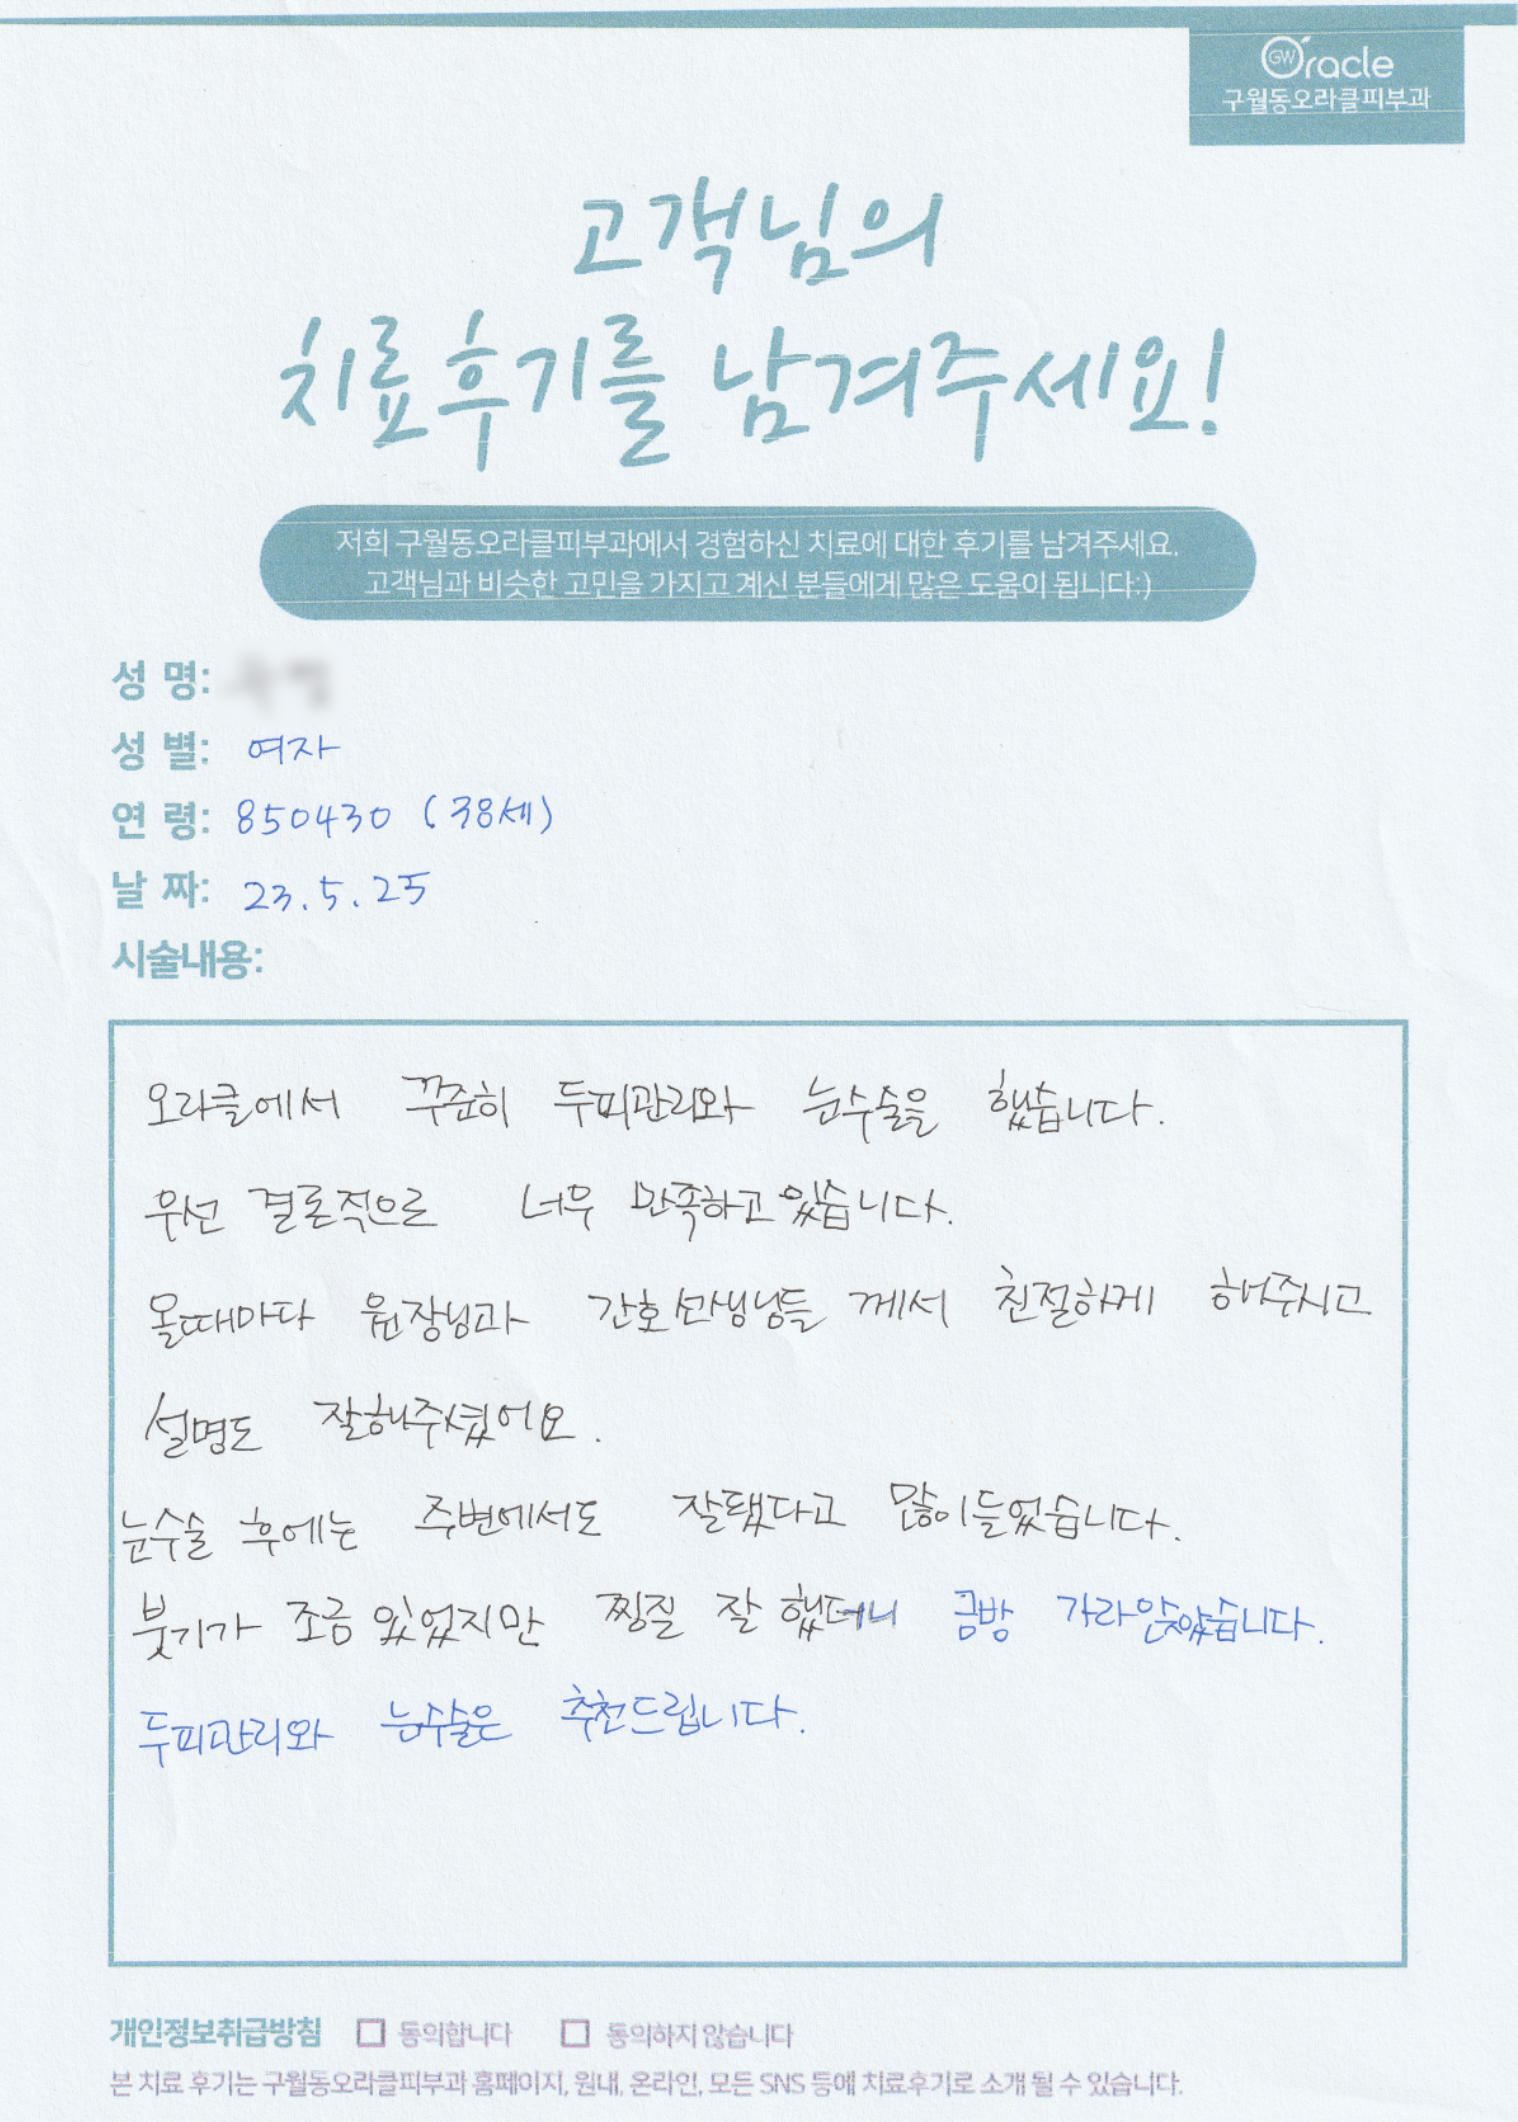 GW Oracle
구월동오라클피부과
고객님의
치료후기를 남겨주세요!
저희 구월동오라클피부과에서 경험하신 치료에 대한 후기를 남겨주세요.
고객님과 비슷한 고민을 가지고 계신 분들에게 많은 도움이 됩니다:)
성 명:
성 별: 여자
연 령: 850430 (38세)
날 짜: 23.5.25
시술내용:
오라클에서 꾸준히 두피관리와 눈수술을 했습니다.
우선 결론적으로 너무 만족하고 있습니다.
올때마다 원장님과 간호선생님들 께서 친절하게 해주시고
설명도 잘해주셨어요.
눈수술 후에는 주변에서도 잘됐다고 많이들었습니다.
붓기가 조금 있었지만 찜질 잘 했더니 금방 가라앉았습니다.
두피관리와 눈수술은 추천드립니다.
개인정보취급방침 □ 동의합니다 □ 동의하지 않습니다
본 치료 후기는 구월동오라클피부과 홈페이지, 원내, 온라인, 모든 SNS 등에 치료후기로 소개 될 수 있습니다.